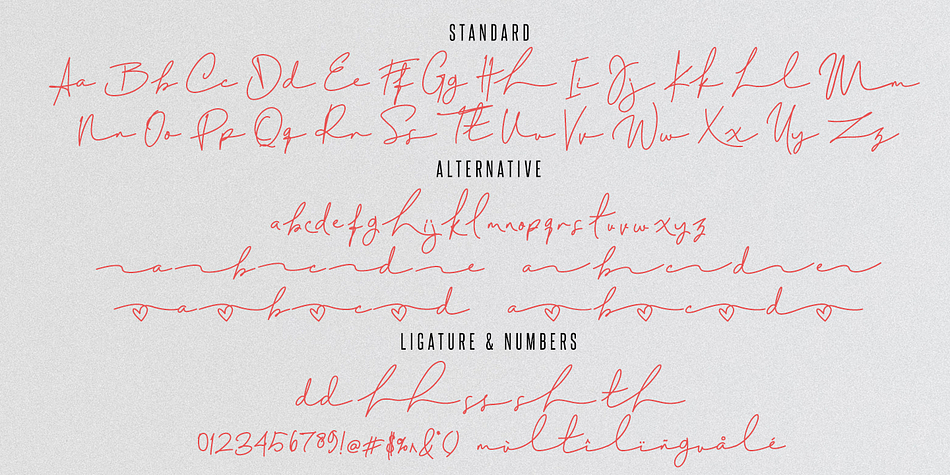 STANDARD
Aa Bb Cc Dd Ee Ff Gg Hh Ii Jj Kk Ll Mm
Nn Oo Pp Qq Rr Ss Tt Uu Vv Ww Xx Yy Zz
ALTERNATIVE
abcdefghijklmnopqrstuvwxyz
a b c d e a b c d e
a b c d a b c d
LIGATURE & NUMBERS
dd hh ss sh th
0123456789!@#$%^&*() mùltîlïñguålé